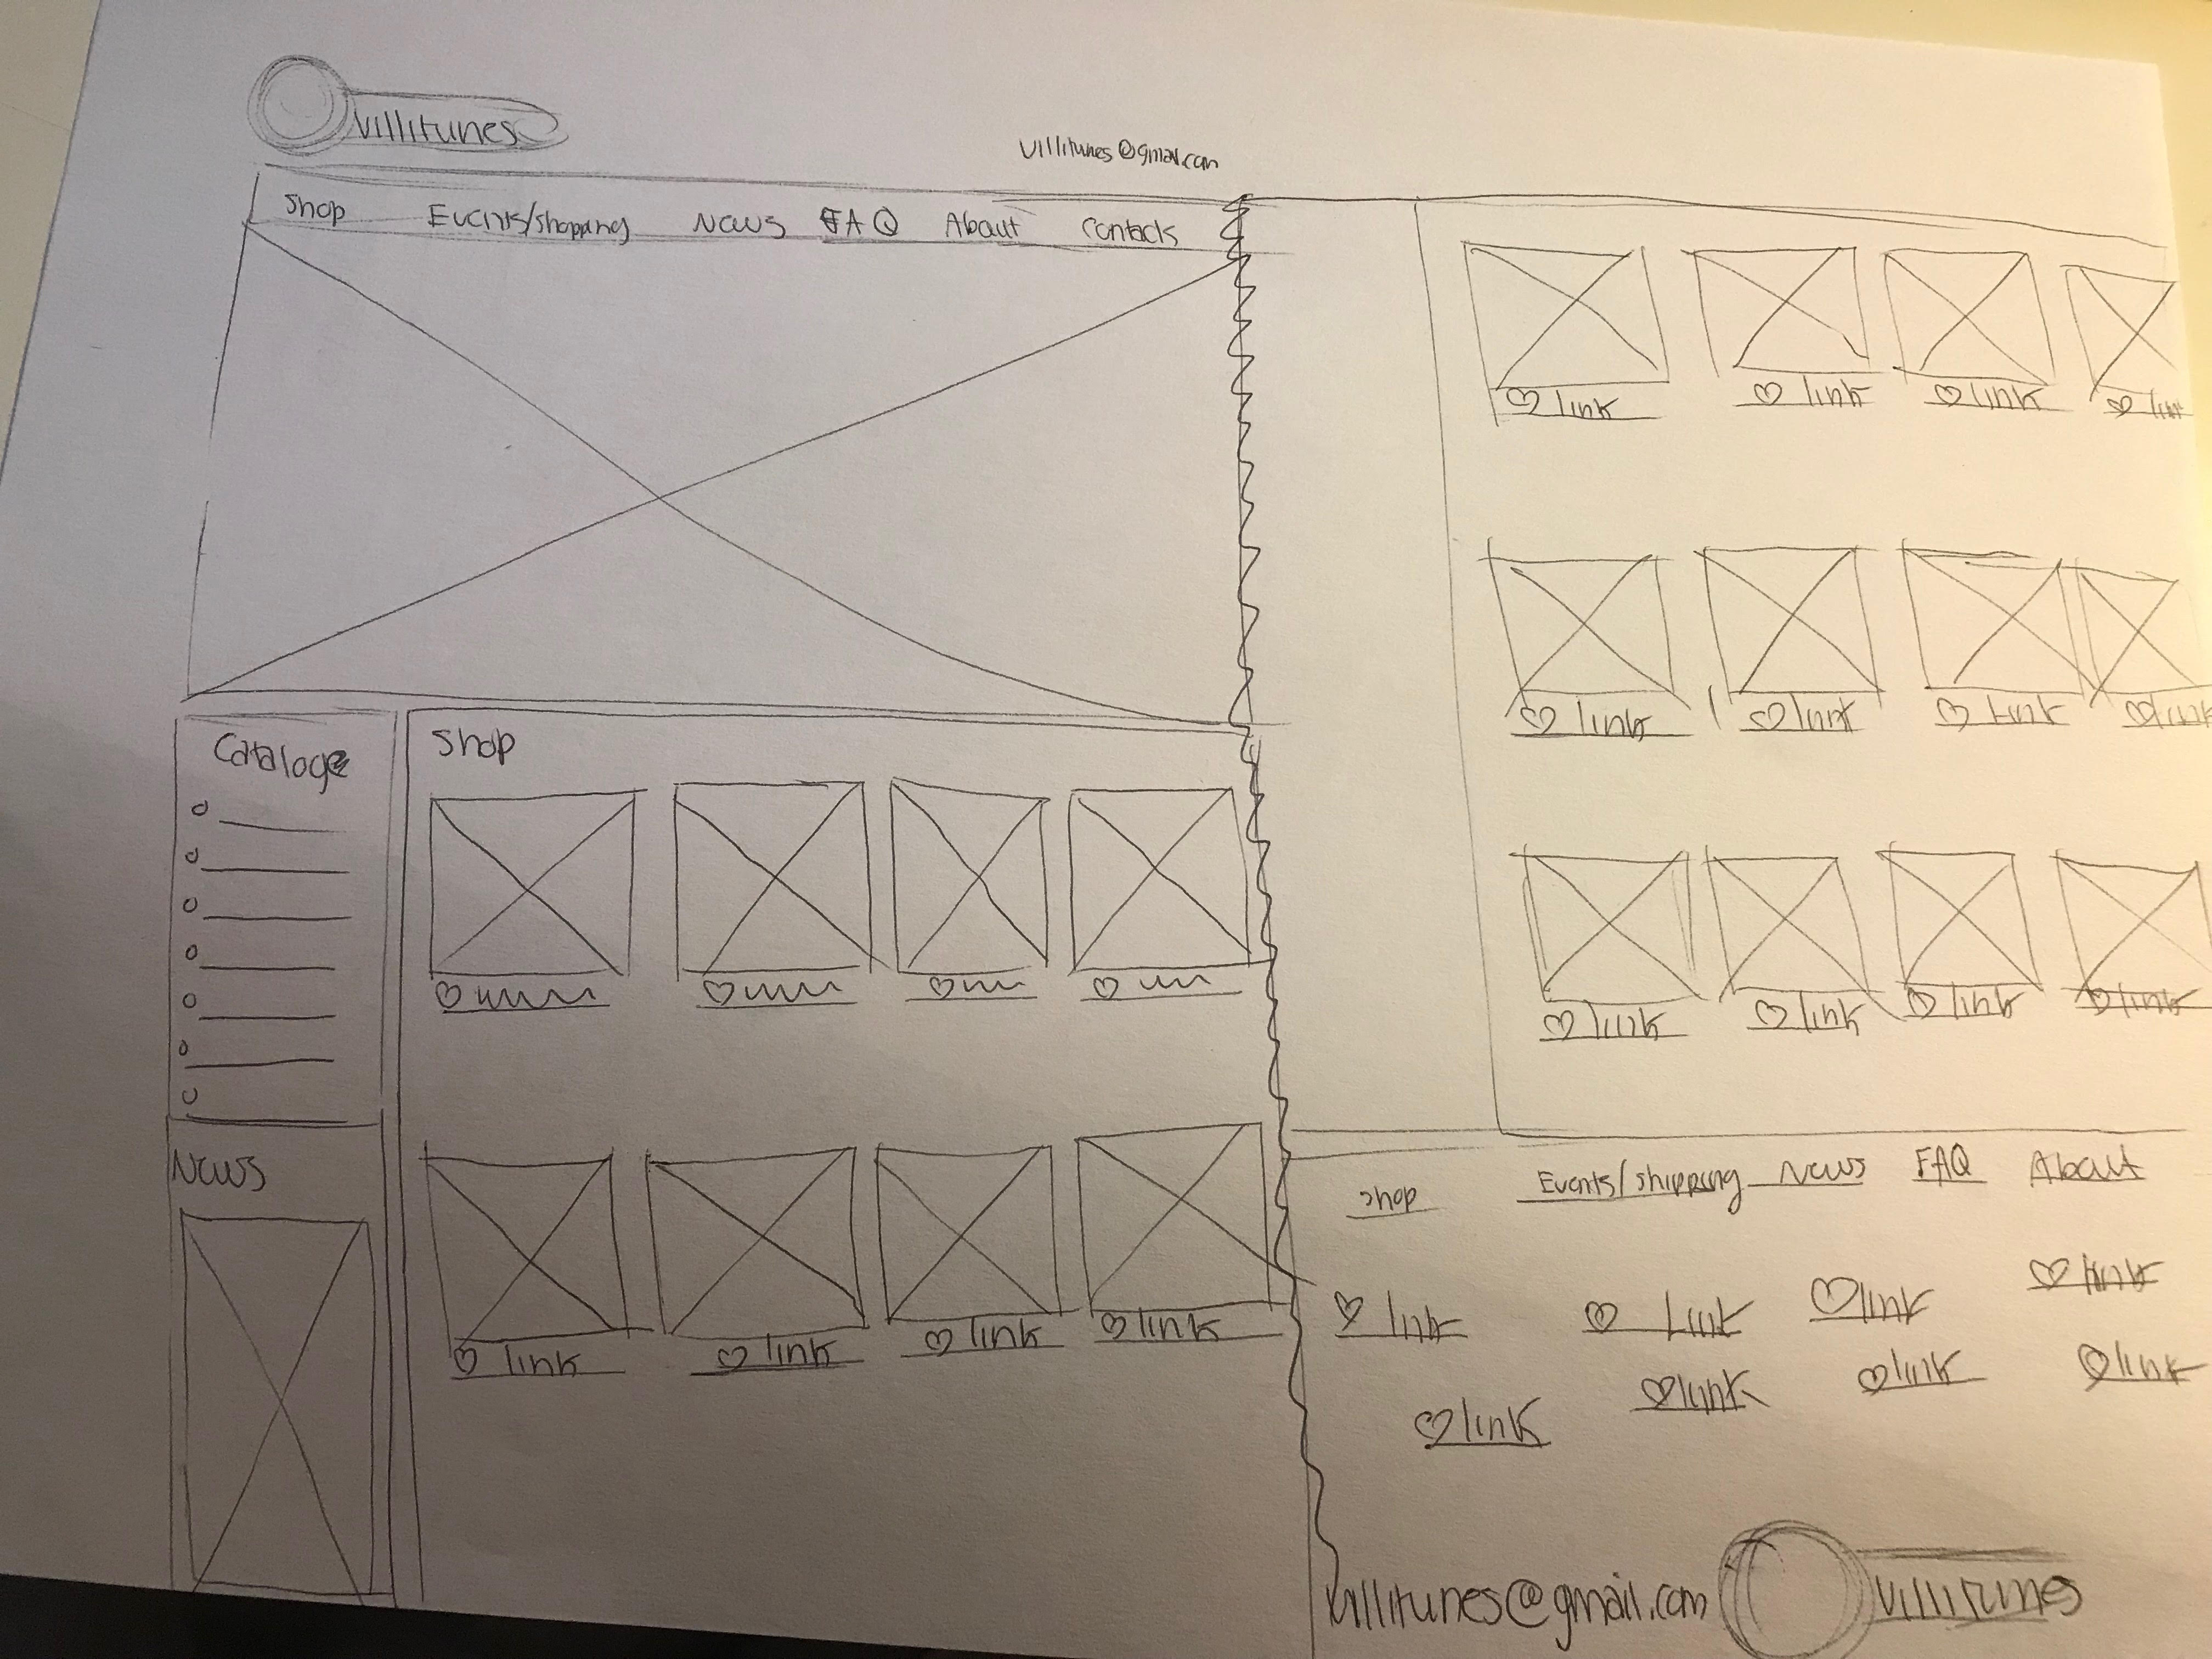 Villitunes
villitunes@gmail.com
Shop Events/shopping News FAQ About Contacts
Cataloge
Shop
News
link link link link
link link link link
link link link link
link link link link
Shop Events/shipping News FAQ About
link link link link
link link link link
villitunes@gmail.com
Villitunes